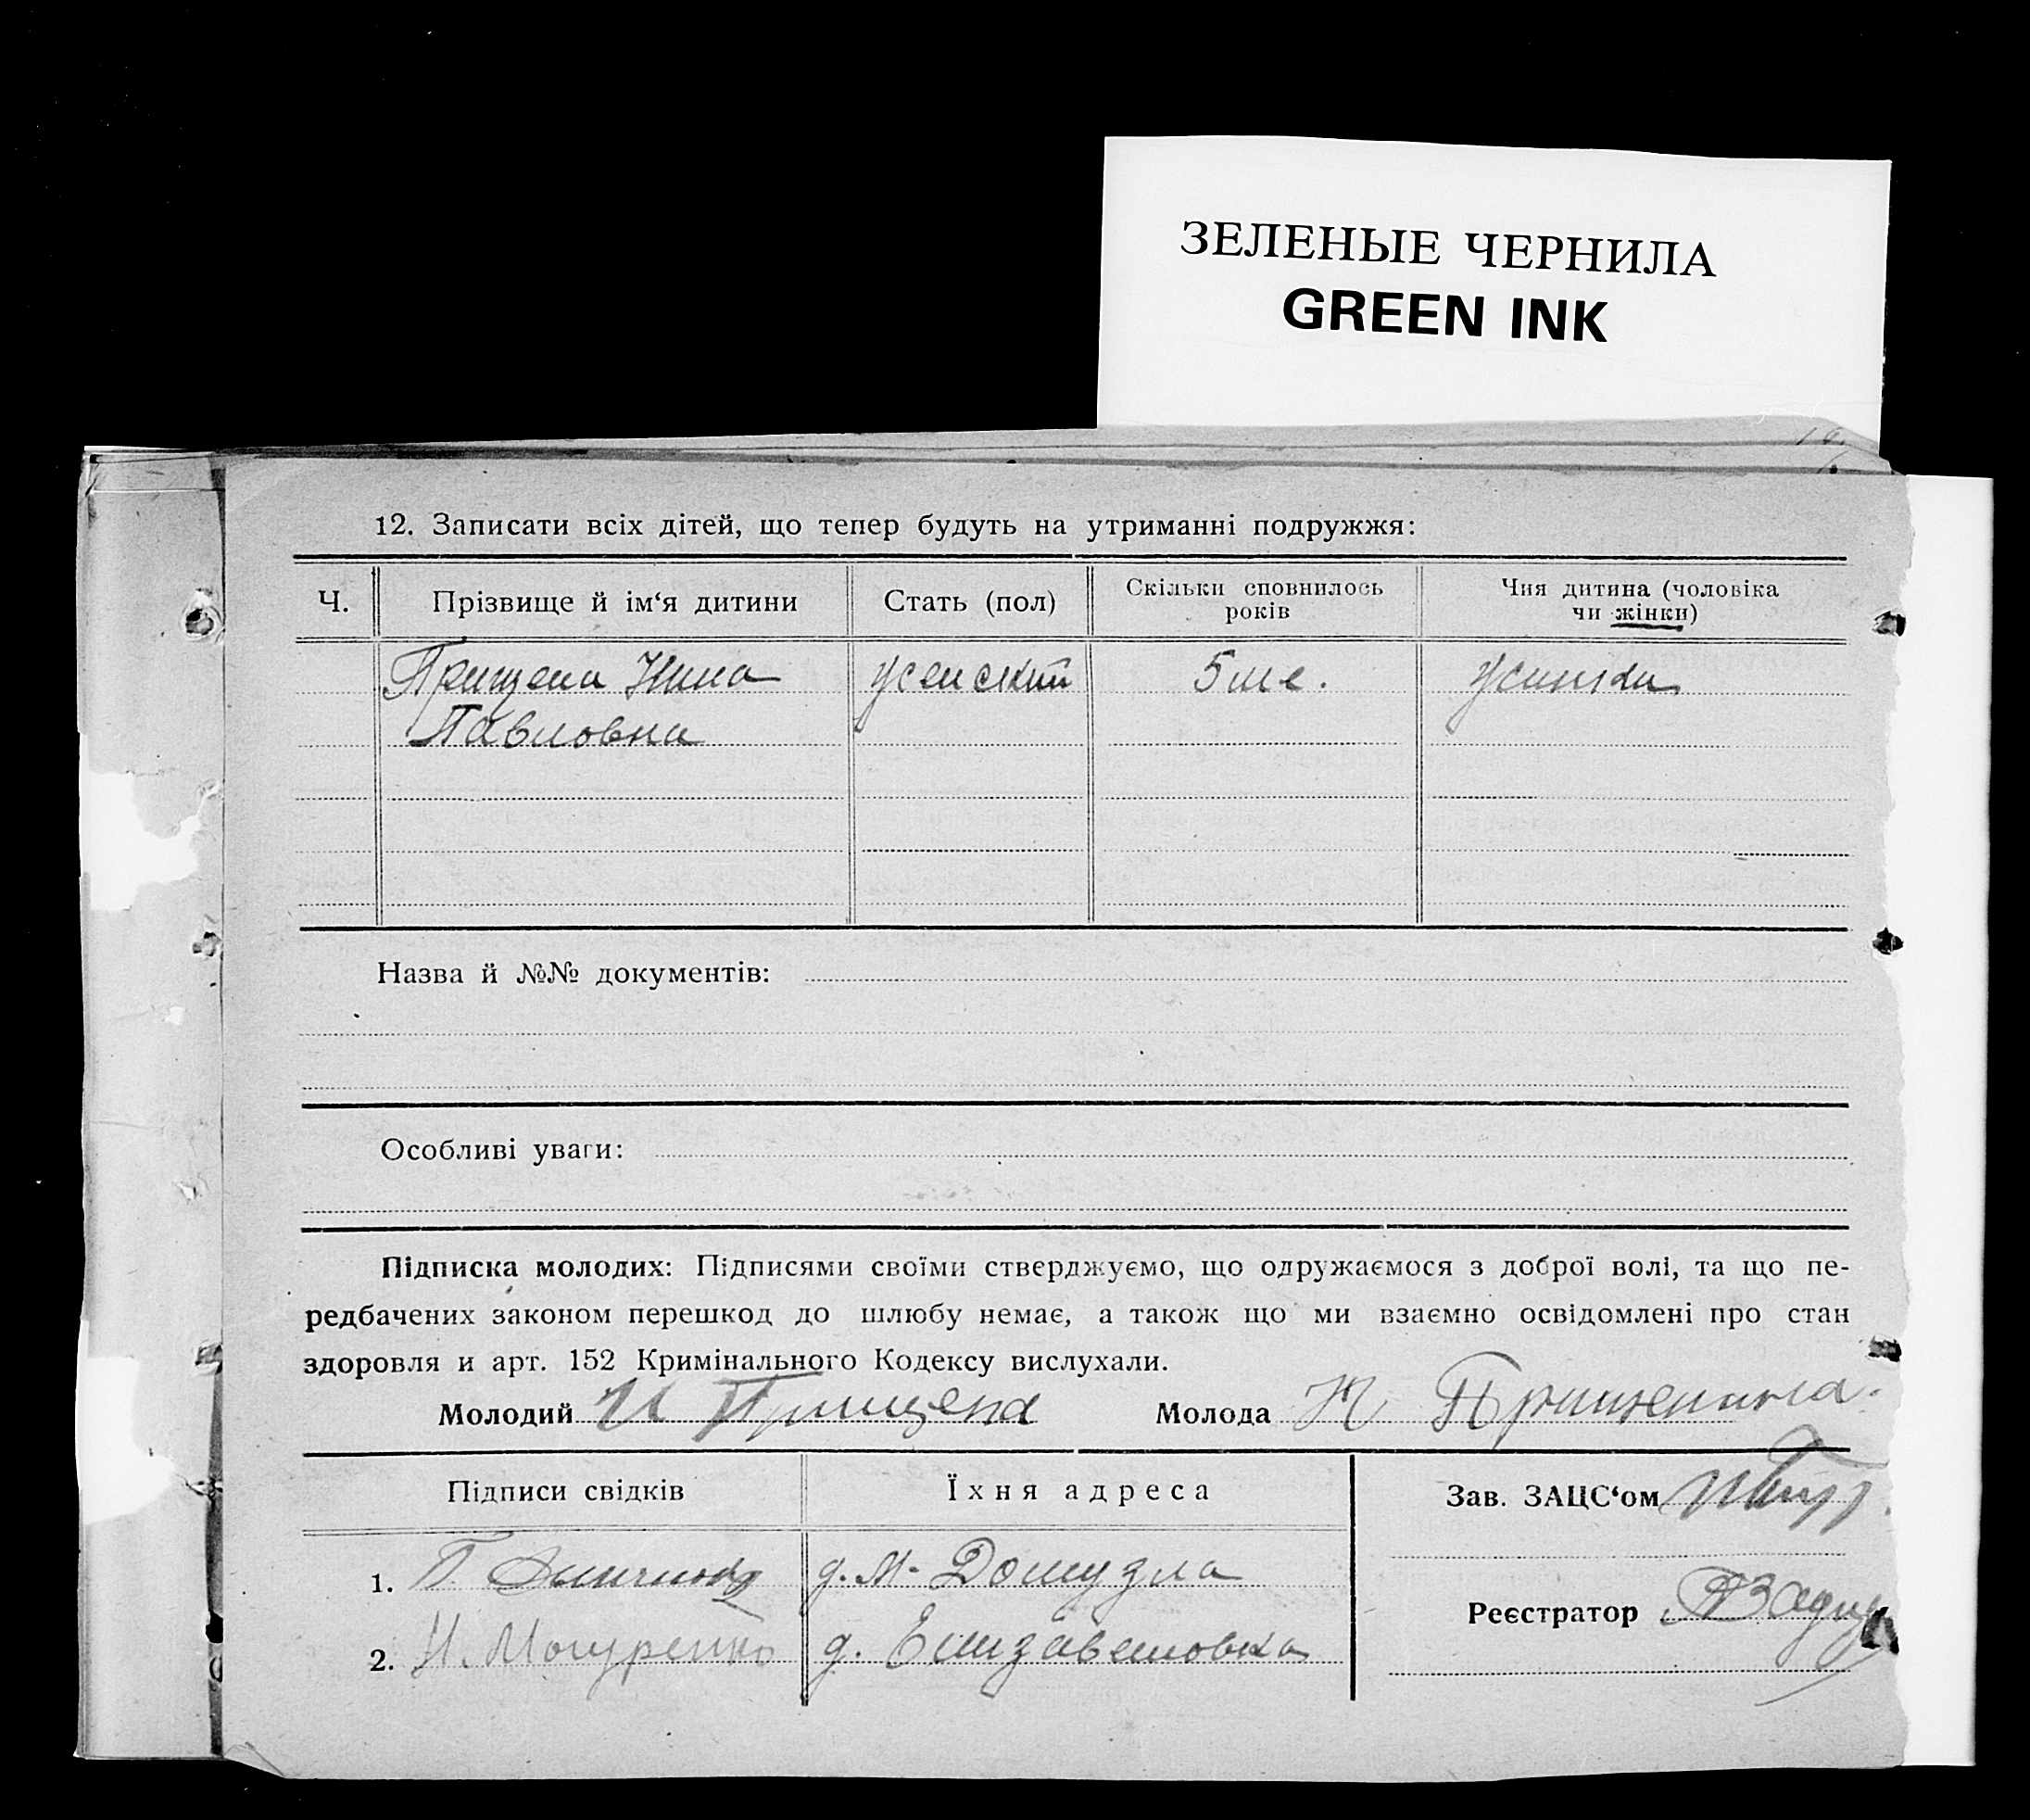 ЗЕЛЕНЫЕ ЧЕРНИЛА
GREEN INK
12. Записати всіх дітей, що тепер будуть на утриманні подружжя:
Ч. Прізвище й ім‘я дитини Стать (пол) Скільки сповнилось років Чия дитина (чоловіка чи жінки)
Прищепа Нина женский 5 ле. жинки
Павловна
Назва й №№ документів:
Особливі уваги:
Підписка молодих: Підписями своїми стверджуємо, що одружаємося з доброї волі, та що пе-
редбачених законом перешкод до шлюбу немає, а також що ми взаємно освідомлені про стан
здоровля и арт. 152 Кримінального Кодексу вислухали.
Молодий И Прищепа Молода Н
Підписи свідків Їхня адреса Зав. ЗАЦС‘ом
1. П. д. М-Дошузла
Реєстратор
2. д. Елизаветовка